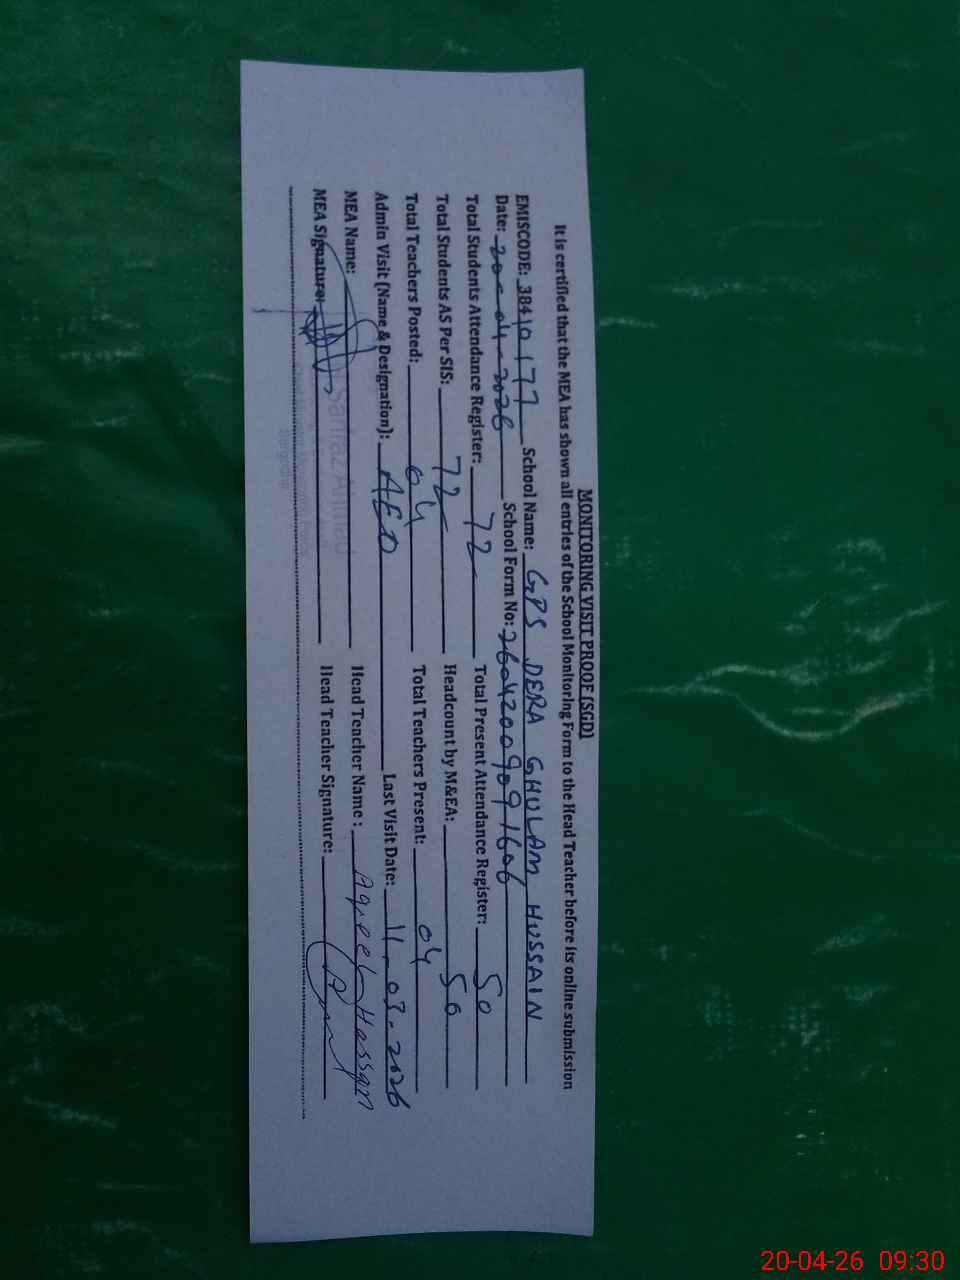 MONITORING VISIT PROOF (SGD)
It is certified that the MEA has shown all entries of the School Monitoring Form to the Head Teacher before its online submission
EMISCODE: 38410177 School Name: GPS DERA GHULAM HUSSAIN
Date: 20-04-2026 School Form No: 26042009091606
Total Students Attendance Register: 72 Total Present Attendance Register: 50
Total Students AS Per SIS: 72 Headcount by M&EA: 50
Total Teachers Posted: 04 Total Teachers Present: 04
Admin Visit (Name & Designation): AEO Last Visit Date: 11.03.2026
MEA Name: Sarfraz Ahmad Head Teacher Name : Aqeel Hassan
MEA Signature: Head Teacher Signature:
20-04-26 09:30